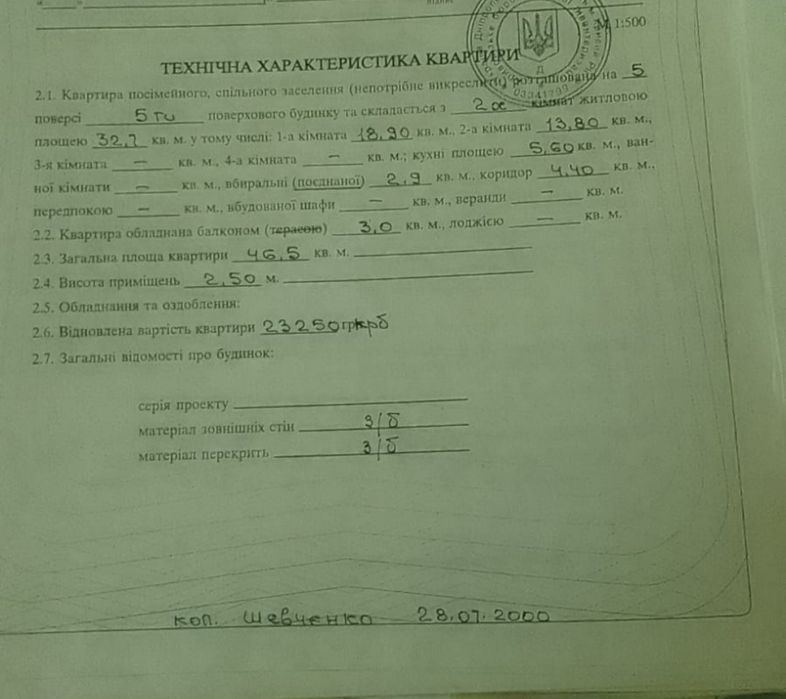 М 1:500
ТЕХНІЧНА ХАРАКТЕРИСТИКА КВАРТИРИ
2.1. Квартира посімейного, спільного заселення (непотрібне викреслити) розташована на 5
поверсі 5 ти поверхового будинку та складається з 2 ох кімнат житловою
площею 32,7 кв. м. у тому числі: 1-а кімната 18,90 кв. м., 2-а кімната 13,80 кв. м.,
3-я кімната — кв. м., 4-а кімната — кв. м.; кухні площею 5,60 кв. м., ван-
ної кімнати — кв. м., вбиральні (поєднаної) 2,9 кв. м., коридор 4,40 кв. м.,
передпокою — кв. м., вбудованої шафи — кв. м., веранди — кв. м.
2.2. Квартира обладнана балконом (терасою) 3,0 кв. м., лоджією — кв. м.
2.3. Загальна площа квартири 46,5 кв. м.
2.4. Висота приміщень 2,50 м.
2.5. Обладнання та оздоблення:
2.6. Відновлена вартість квартири 23250 крб
2.7. Загальні відомості про будинок:
серія проекту
матеріал зовнішніх стін з/б
матеріал перекрить з/б
коп. Шевченко 28.07.2000